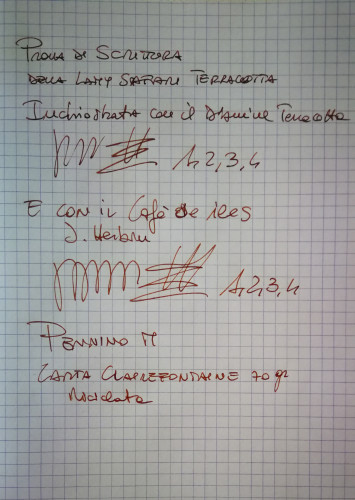 PROVA DI SCRITTURA
DELLA LAMY SAFARI TERRACOTTA
Inchiostrata con il Diamine Terracotta
1, 2, 3, 4
E CON IL Cafè de iles
J. Herbin
1, 2, 3, 4
PENNINO M
CARTA CLAIREFONTAINE 70 gr
Riciclata